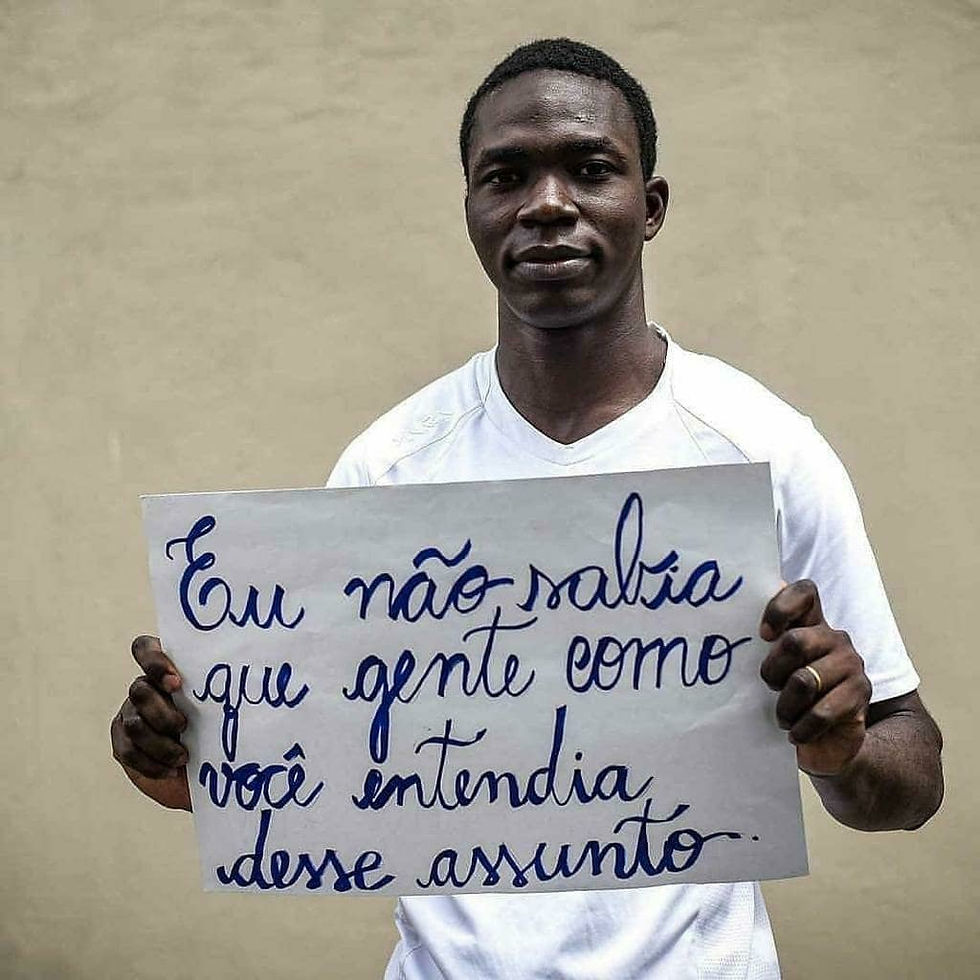 Eu não sabia
que gente como
você entendia
desse assunto.